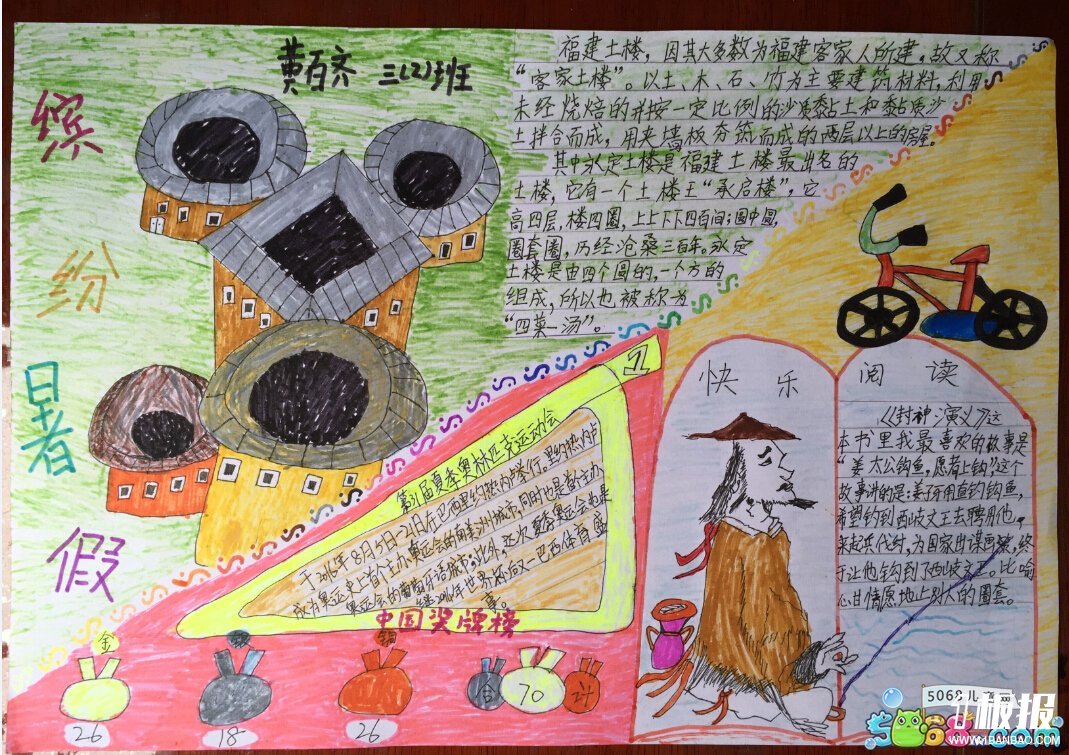 缤
纷
暑
假
黄百齐 三(2)班
福建土楼，因其大多数为福建客家人所建，故又称
“客家土楼”。以土、木、石、竹为主要建筑材料，利用
未经烧焙的并按一定比例的沙质黏土和黏质沙
土拌合而成，用夹墙板夯筑而成的两层以上的房屋。
其中永定土楼是福建土楼最出名的
土楼，它有一个土楼王“承启楼”，它
高四层，楼四圈，上上下下四百间；圆中圆，
圈套圈，历经沧桑三百年。永定
土楼是由四个圆的，一个方的
组成，所以也被称为
“四菜一汤”。
1
第31届夏季奥林匹克运动会
于2016年8月5日-21日在巴西里约热内卢举行。里约热内卢
成为奥运史上首个主办奥运会的南美洲城市，同时也是首个主办
奥运会的葡萄牙语城市；此外，这次夏季奥运会也是
继2016年世界杯后又一巴西体育盛
事。
中国奖牌榜
金
银
铜
26
18
26
合 70 计
快乐
阅读
《封神演义》这
本书里我最喜欢的故事是
“姜太公钩鱼，愿者上钩”。这个
故事讲的是：姜子牙用直钓钩鱼，
希望钓到西岐文王去聘用他，
来起兵伐纣，为国家出谋画策，终
于让他钩到了西岐文王。比喻
心甘情愿地上别人的圈套。
5068儿
板报
WWW.1BANBAO.COM